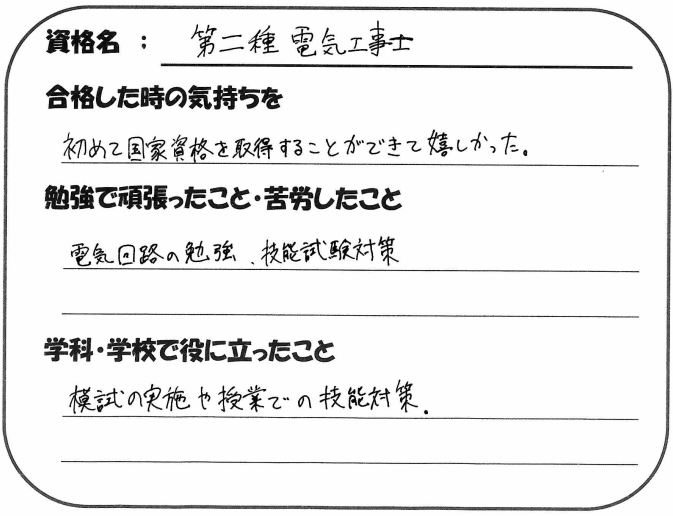 資格名 : 第二種 電気工事士
合格した時の気持ちを
初めて国家資格を取得することができて嬉しかった。
勉強で頑張ったこと・苦労したこと
電気回路の勉強、技能試験対策
学科・学校で役に立ったこと
模試の実施や授業での技能対策。